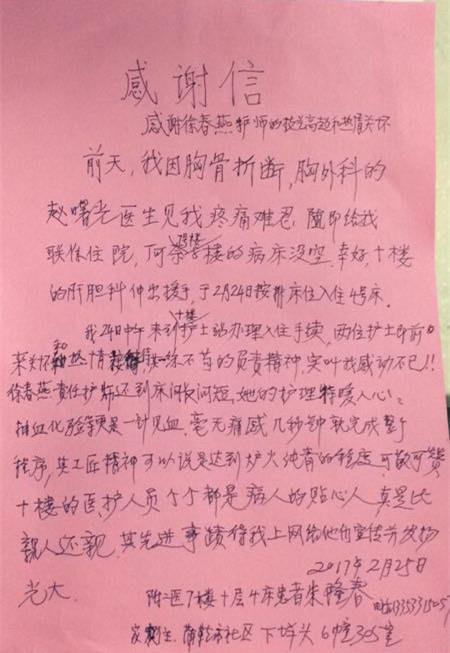 感谢信
感谢徐春燕护师的技艺高超和热肩关怀
前天,我因胸骨折断,胸外科的
赵曙光医生见我疼痛难忍,随即给我
联系住院,何奈楼的病床没空,幸好,十楼
的肝胆科伸出援手,于2月24日按排床位入住4号床.
我24日中午来十楼护士站办理入住手续,两位护士即前
来关怀和热情一丝不苟的负责精神,实叫我感动不已!!
徐春燕责任护师还到床问长问短,她的护理特暖人心!
抽血化验等更是一针见血,毫无痛感几秒钟就完成整个
程序,其工匠精神可以说是达到炉火纯青的程度,可歌可赞
十楼的医护人员个个都是病人的贴心人,真是比
亲人还亲,其先进事蹟得我上网给他们宣传并发扬
光大.
2017年2月25日
附二医7楼十层4床患者朱隆春
家住 市社区 下埠头 6幢305室